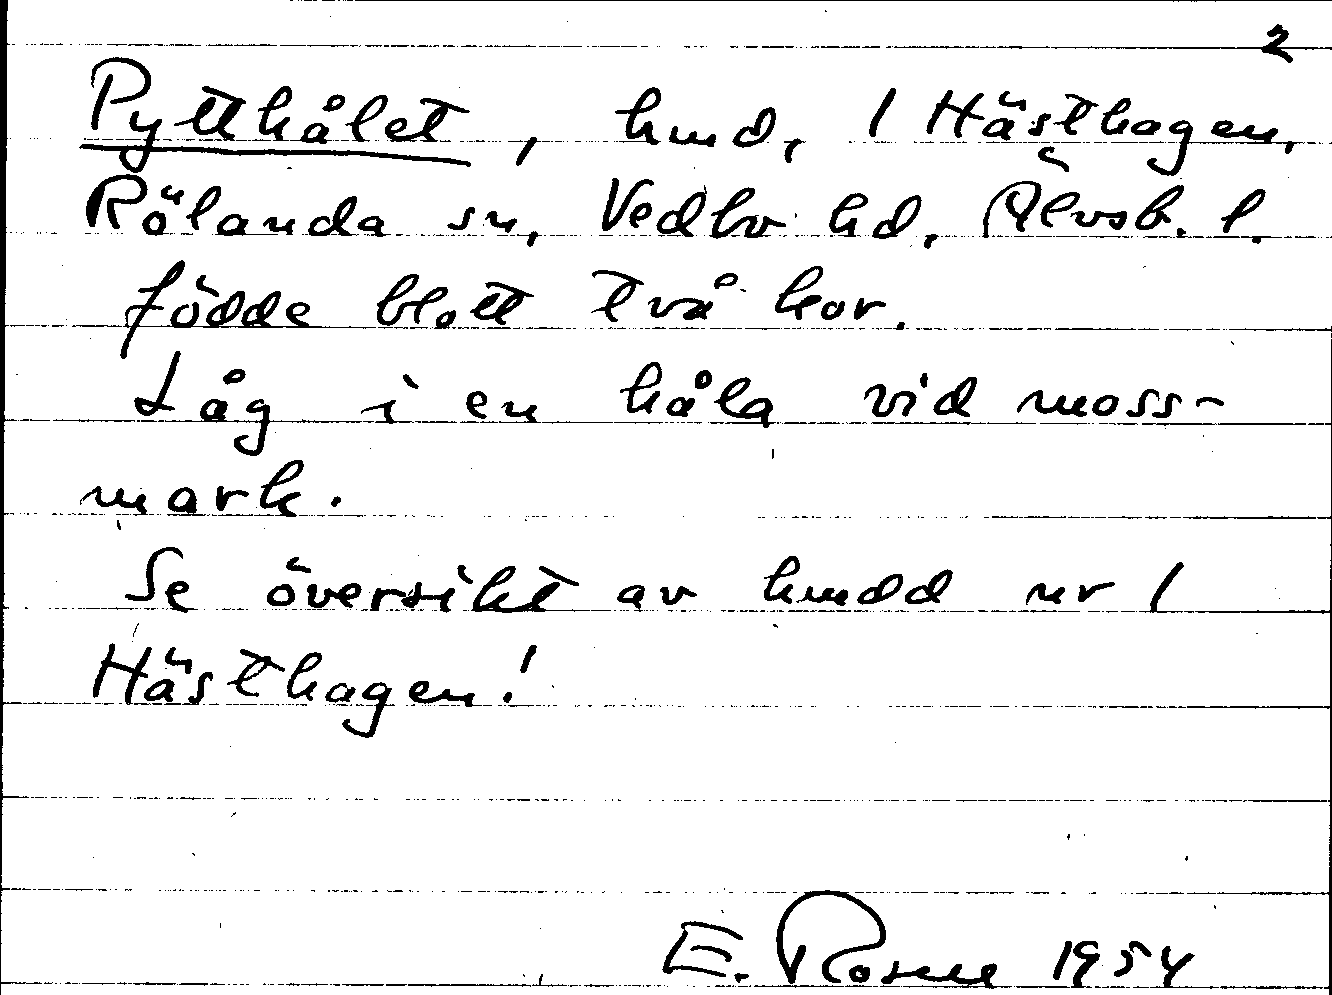 2
Pytthålet, hmd, 1 Hästhagen,
Rölanda sn, Vedbo hd, Älvsb. l.
födde blott två kor.
Låg i en håla vid moss-
mark.
Se översikt av hmdd ur 1
Hästhagen!
E. Rosell 1954